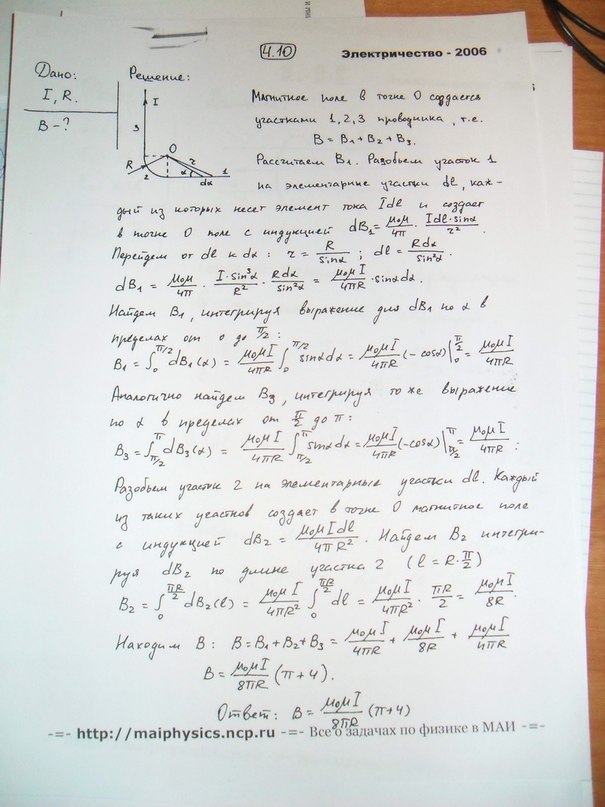 4.10
Электричество - 2006
Дано:
I, R.
B-?
Решение:
I
3
O
R
2
r
α
dα
1
Магнитное поле в точке O создаётся
участками 1, 2, 3 проводника, т.е.
B = B₁ + B₂ + B₃.
Рассчитаем B₁. Разобьем участок 1
на элементарные участки dl, каж-
дый из которых несет элемент тока Idl и создает
в точке O поле с индукцией dB₁ = μ₀μ/4π · Idl·sinα/r².
Перейдем от dl к dα: r = R/sinα ; dl = Rdα/sin²α.
dB₁ = μ₀μ/4π · I·sin³α/R² · Rdα/sin²α = μ₀μI/4πR · sinαdα.
Найдем B₁, интегрируя выражение для dB₁ по α в
пределах от 0 до π/2:
B₁ = ∫₀^π/2 dB₁(α) = μ₀μI/4πR ∫₀^π/2 sinαdα = μ₀μI/4πR (-cosα)|₀^π/2 = μ₀μI/4πR
Аналогично найдем B₃, интегрируя то же выражение
по α в пределах от π/2 до π:
B₃ = ∫π/2^π dB₃(α) = μ₀μI/4πR ∫π/2^π sinαdα = μ₀μI/4πR (-cosα)|π/2^π = μ₀μI/4πR ;
Разобьем участк 2 на элементарные участки dl. Каждый
из таких участков создает в точке O магнитное поле
с индукцией dB₂ = μ₀μIdl/4πR². Найдем B₂ интегри-
руя dB₂ по длине участка 2 (l = R·π/2)
B₂ = ∫₀^πR/2 dB₂(l) = μ₀μI/4πR² ∫₀^πR/2 dl = μ₀μI/4πR² · πR/2 = μ₀μI/8R.
Находим B: B = B₁ + B₂ + B₃ = μ₀μI/4πR + μ₀μI/8R + μ₀μI/4πR
B = μ₀μI/8πR (π+4).
Ответ: B = μ₀μI/8πR (π+4)
-=- http://maiphysics.ncp.ru -=- Все о задачах по физике в МАИ -=-